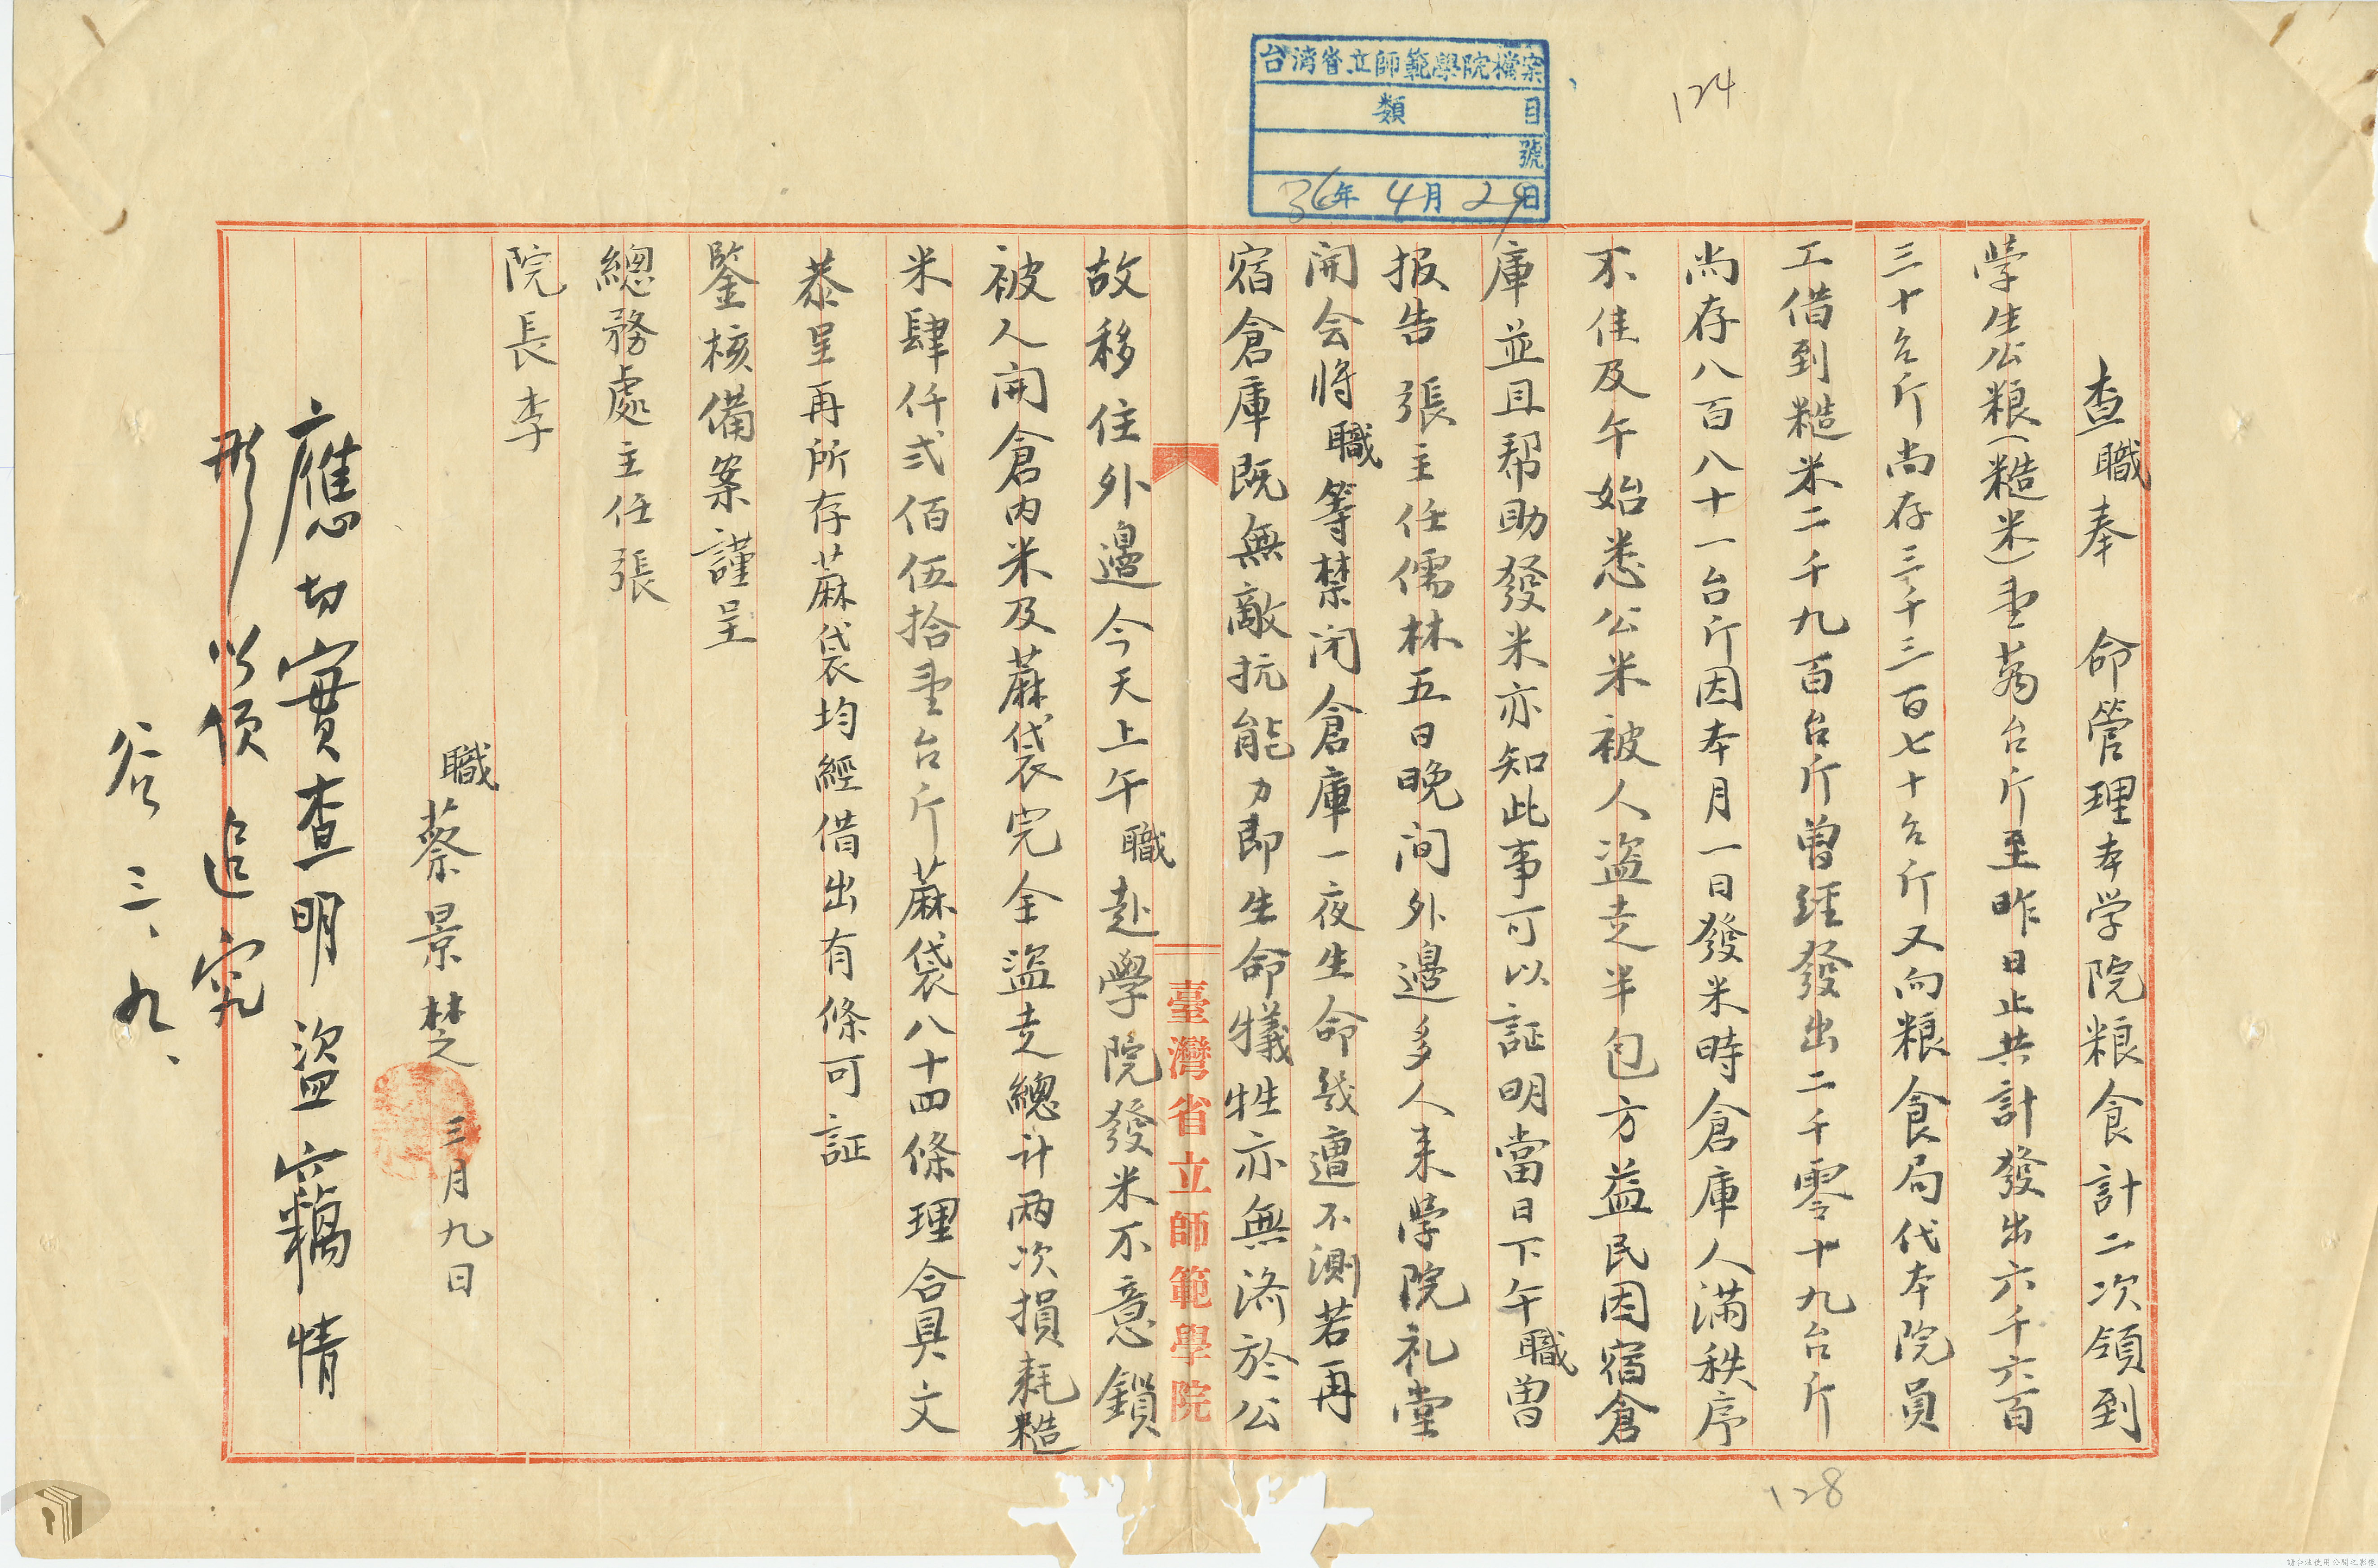 124
台湾省立師範學院檔案
類目
號
36年4月29日
查職奉 命管理本学院粮食計二次領到
学生公粮(糙米)壹萬台斤至昨日止共計發出六千六百
三十台斤尚存三千三百七十台斤又向粮食局代本院員
工借到糙米二千九百台斤曾經發出二千零十九台斤
尚存八百八十一台斤因本月一日發米時倉庫人滿秩序
不佳及午始悉公米被人盜走半包方益民因宿倉
庫並且帮助發米亦知此事可以証明當日下午職曽
报告 張主任儒林五日晚间外邊多人来學院礼堂
開会將職等禁闭倉庫一夜生命幾遭不測若再
宿倉庫既無敵抗能力即生命犠牲亦無済於公
臺灣省立師範學院
故移住外邊今天上午職赴學院發米不意鎖
被人開倉內米及蔴袋完全盜走總计两次損耗糙
米肆仟弍佰伍拾壹台斤蔴袋八十四條理合具文
恭呈再所存蔴袋均經借出有條可証
鑒核備案謹呈
總務處主任張
院長李
職蔡景楚 三月九日
應切實查明盜竊情
形以便追究
谷 三、九、
128
請合法使用公開之影像